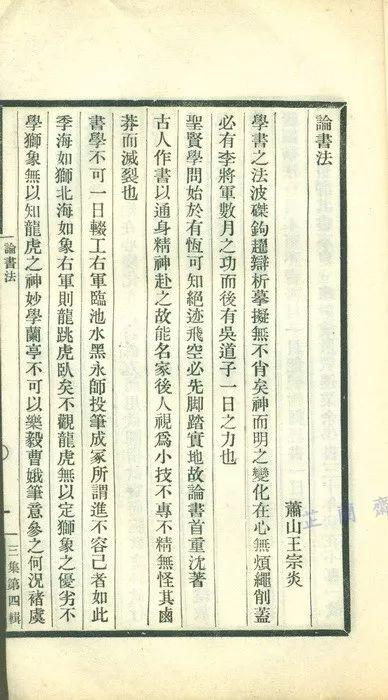 論書法
蕭山王宗炎
學書之法波磔鉤趯辯析摹擬無不肖矣神而明之變化在心無煩繩削蓋
必有李將軍數月之功而後有吳道子一日之力也
聖賢學問始於有恆可知絕迹飛空必先脚踏實地故論書首重沈著
古人作書以通身精神赴之故能名家後人視爲小技不專不精無怪其鹵
莽而滅裂也
書學不可一日輟工右軍臨池水黑永師投筆成冢所謂進不容已者如此
季海如獅北海如象右軍則龍跳虎臥矣不觀龍虎無以定獅象之優劣不
學獅象無以知龍虎之神妙學蘭亭不可以樂毅曹娥筆意參之何況褚虞
論書法
三集第四輯
芷蘭齋